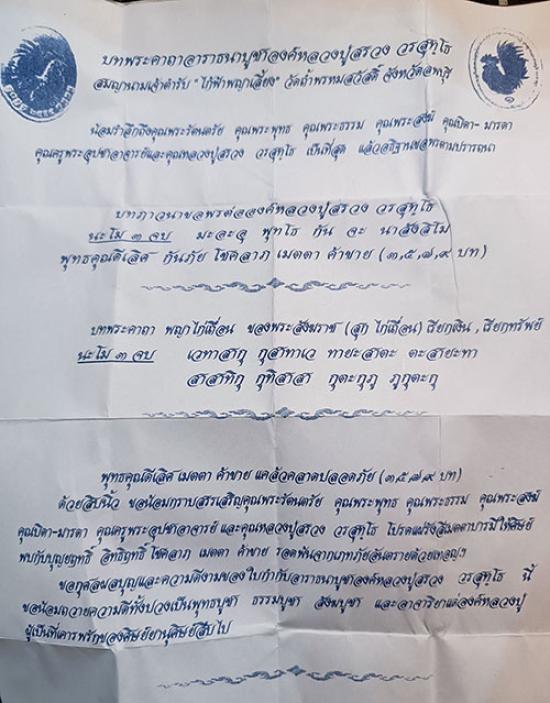 บทพระคาถาอาราธนาบูชาองค์หลวงปู่สรวง วรสุทฺโธ
สมญานามเจ้าตำรับ "ไก่ฟ้าพญาเลี้ยง" วัดถ้ำพรหมสวัสดิ์ จังหวัดลพบุรี
น้อมรำลึกถึงคุณพระรัตนตรัย คุณพระพุทธ คุณพระธรรม คุณพระสงฆ์ คุณบิดา-มารดา
คุณครูพระอุปชาอาจารย์และคุณหลวงปู่สรวง วรสุทฺโธ เป็นที่สุด แล้วอธิฐานขอพรตามปรารถนา
บทภาวนาขอพรต่อองค์หลวงปู่สรวง วรสุทฺโธ
นะโม ๓ จบ มะอะอุ พุทโธ กัน จะ นาสังสิโม
พุทธคุณดีเลิศ กันภัย โชคลาภ เมตตา ค้าขาย (๓,๕,๗,๙ บท)
บทพระคาถา พญาไก่เถื่อน ของพระสังฆราช (สุก ไก่เถื่อน) เรียกเงิน, เรียกทรัพย์
นะโม ๓ จบ เวทาสากุ กุสาทาเว ทายะสาตะ ตะสายะทา
สาสาทิกุ กุทิสาสา กุตะกุภู ภูกุตะกุ
พุทธคุณดีเลิศ เมตตา ค้าขาย แคล้วคลาดปลอดภัย (๓๕๗๙ บท)
ด้วยสิบนิ้ว ขอน้อมกราบสรรเสริญคุณพระรัตนตรัย คุณพระพุทธ คุณพระธรรม คุณพระสงฆ์
คุณบิดา-มารดา คุณครูพระอุปชาอาจารย์ และคุณหลวงปู่สรวง วรสุทฺโธ โปรดแผ่รังสีเมตตาบารมีให้ศิษย์
พบกับบุญยฤทธิ์ สิทธิฤทธิ์ โชคลาภ เมตตา ค้าขาย รอดพ้นจากเภทภัยอันตรายด้วยเทอญฯ
ขอกุศลผลบุญและความดีงามของใบกำกับอาราธนาบูชาองค์หลวงปู่สรวง วรสุทฺโธ นี้
ขอน้อมถวายความดีทั้งปวงเป็นพุทธบูชา ธรรมบูชา สังฆบูชา และอาจาริยาแด่องค์หลวงปู่
ผู้เป็นที่เคารพรักของศิษย์ยานุศิษย์สืบไป